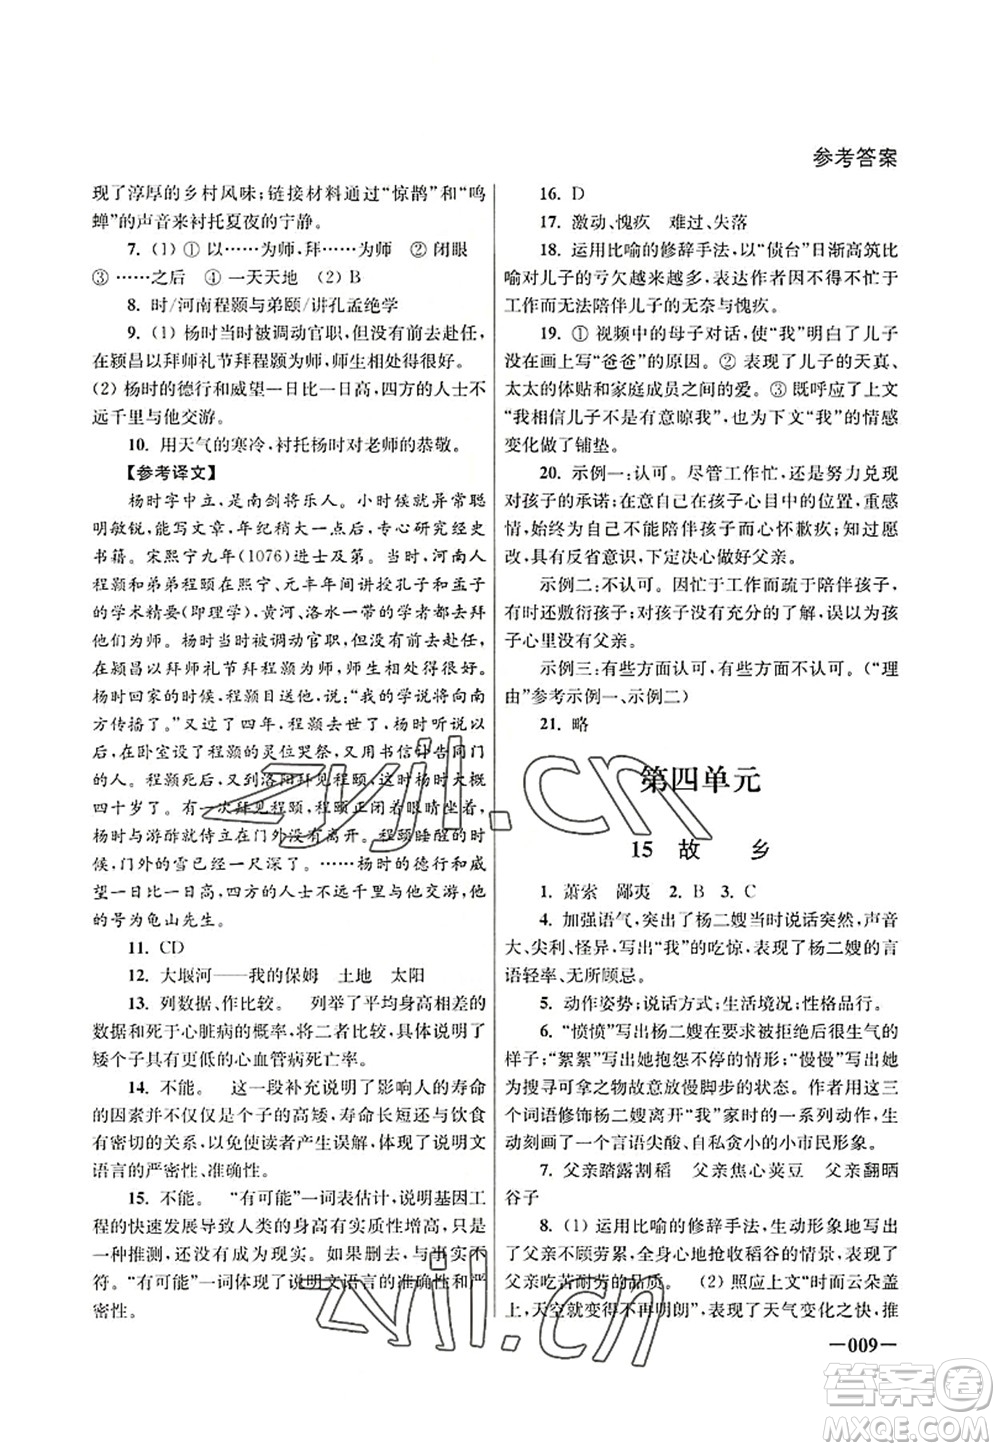 参考答案
现了淳厚的乡村风味;链接材料通过“惊鹊”和“鸣
蝉”的声音来衬托夏夜的宁静。
7. (1) ① 以……为师,拜……为师 ② 闭眼
③ ……之后 ④ 一天天地 (2) B
8. 时/河南程颢与弟颐/讲孔孟绝学
9. (1) 杨时当时被调动官职,但没有前去赴任,
在颍昌以拜师礼节拜程颢为师,师生相处得很好。
(2) 杨时的德行和威望一日比一日高,四方的人士不
远千里与他交游。
10. 用天气的寒冷,衬托杨时对老师的恭敬。
【参考译文】
杨时字中立,是南剑将乐人。小时候就异常聪
明敏锐,能写文章,年纪稍大一点后,专心研究经史
书籍。宋熙宁九年(1076)进士及第。当时,河南人
程颢和弟弟程颐在熙宁、元丰年间讲授孔子和孟子
的学术精要(即理学),黄河、洛水一带的学者都去拜
他们为师。杨时当时被调动官职,但没有前去赴任,
在颍昌以拜师礼节拜程颢为师,师生相处得很好。
杨时回家的时候,程颢目送他,说:“我的学说将向南
方传播了。”又过了四年,程颢去世了,杨时听说以后,
在卧室设了程颢的灵位哭祭,又用书信讣告同门
的人。程颢死后,又去洛阳拜见程颐,这时杨时大概
四十岁了。有一次拜见程颐,程颐正在打瞌睡,
杨时与游酢就侍立在门外没有离开。程颐睡醒的时
候,门外的雪已经一尺深了。……杨时的德行和威
望一日比一日高,四方的人士不远千里与他交游,他
的号为龟山先生。
11. CD
12. 大堰河——我的保姆 土地 太阳
13. 列数据、作比较。 列举了平均身高相差的
数据和死于心脏病的概率,将二者比较,具体说明了
矮个子具有更低的心血管病死亡率。
14. 不能。 这一段补充说明了影响人的寿命
的因素并不仅仅是个子的高矮,寿命长短还与饮食
有密切的关系,以免使读者产生误解,体现了说明文
语言的严密性、准确性。
15. 不能。 “有可能”一词表估计,说明基因工
程的快速发展导致人类的身高有实质性增高,只是
一种推测,还没有成为现实。如果删去,与事实不
符。“有可能”一词体现了说明文语言的准确性和严
密性。
16. D
17. 激动、愧疚 难过、失落
18. 运用比喻的修辞手法,以“债台”日渐高筑比
喻对儿子的亏欠越来越多,表达作者因不得不忙于
工作而无法陪伴儿子的无奈与愧疚。
19. ① 视频中的母子对话,使“我”明白了儿子
没在画上写“爸爸”的原因。② 表现了儿子的天真、
太太的体贴和家庭成员之间的爱。③ 既呼应了上文
“我相信儿子不是有意晾我”,也为下文“我”的情感
变化做了铺垫。
20. 示例一:认可。尽管工作忙,还是努力兑现
对孩子的承诺;在意自己在孩子心目中的位置,重感
情,始终为自己不能陪伴孩子而心怀歉疚;知过愿
改,具有反省意识,下定决心做好父亲。
示例二:不认可。因忙于工作而疏于陪伴孩子,
有时还敷衍孩子;对孩子没有充分的了解,误以为孩
子心里没有父亲。
示例三:有些方面认可,有些方面不认可。(“理
由”参考示例一、示例二)
21. 略
第四单元
15 故 乡
1. 萧索 鄙夷 2. B 3. C
4. 加强语气,突出了杨二嫂当时说话突然,声音
大、尖利、怪异,写出“我”的吃惊,表现了杨二嫂的言
语轻率、无所顾忌。
5. 动作姿势;说话方式;生活境况;性格品行。
6. “愤愤”写出杨二嫂在要求被拒绝后很生气的
样子;“絮絮”写出她抱怨不停的情形;“慢慢”写出她
搜寻可拿之物故意放慢脚步的状态。作者用这三
个词语修饰杨二嫂离开“我”家时的一系列动作,生
动刻画了一个言语尖酸、自私贪小的小市民形象。
7. 父亲踏露割稻 父亲焦心荚豆 父亲翻晒
谷子
8. (1) 运用比喻的修辞手法,生动形象地写出
了父亲不顾劳累,全身心地抢收稻谷的情景,表现了
父亲吃苦耐劳的品质。 (2) 照应上文“时而云朵盖
上,天空就变得不再明朗”,表现了天气变化之快,推
—009—
zyjl.cn
zyjl.cn
答案圈
MXQE.COM